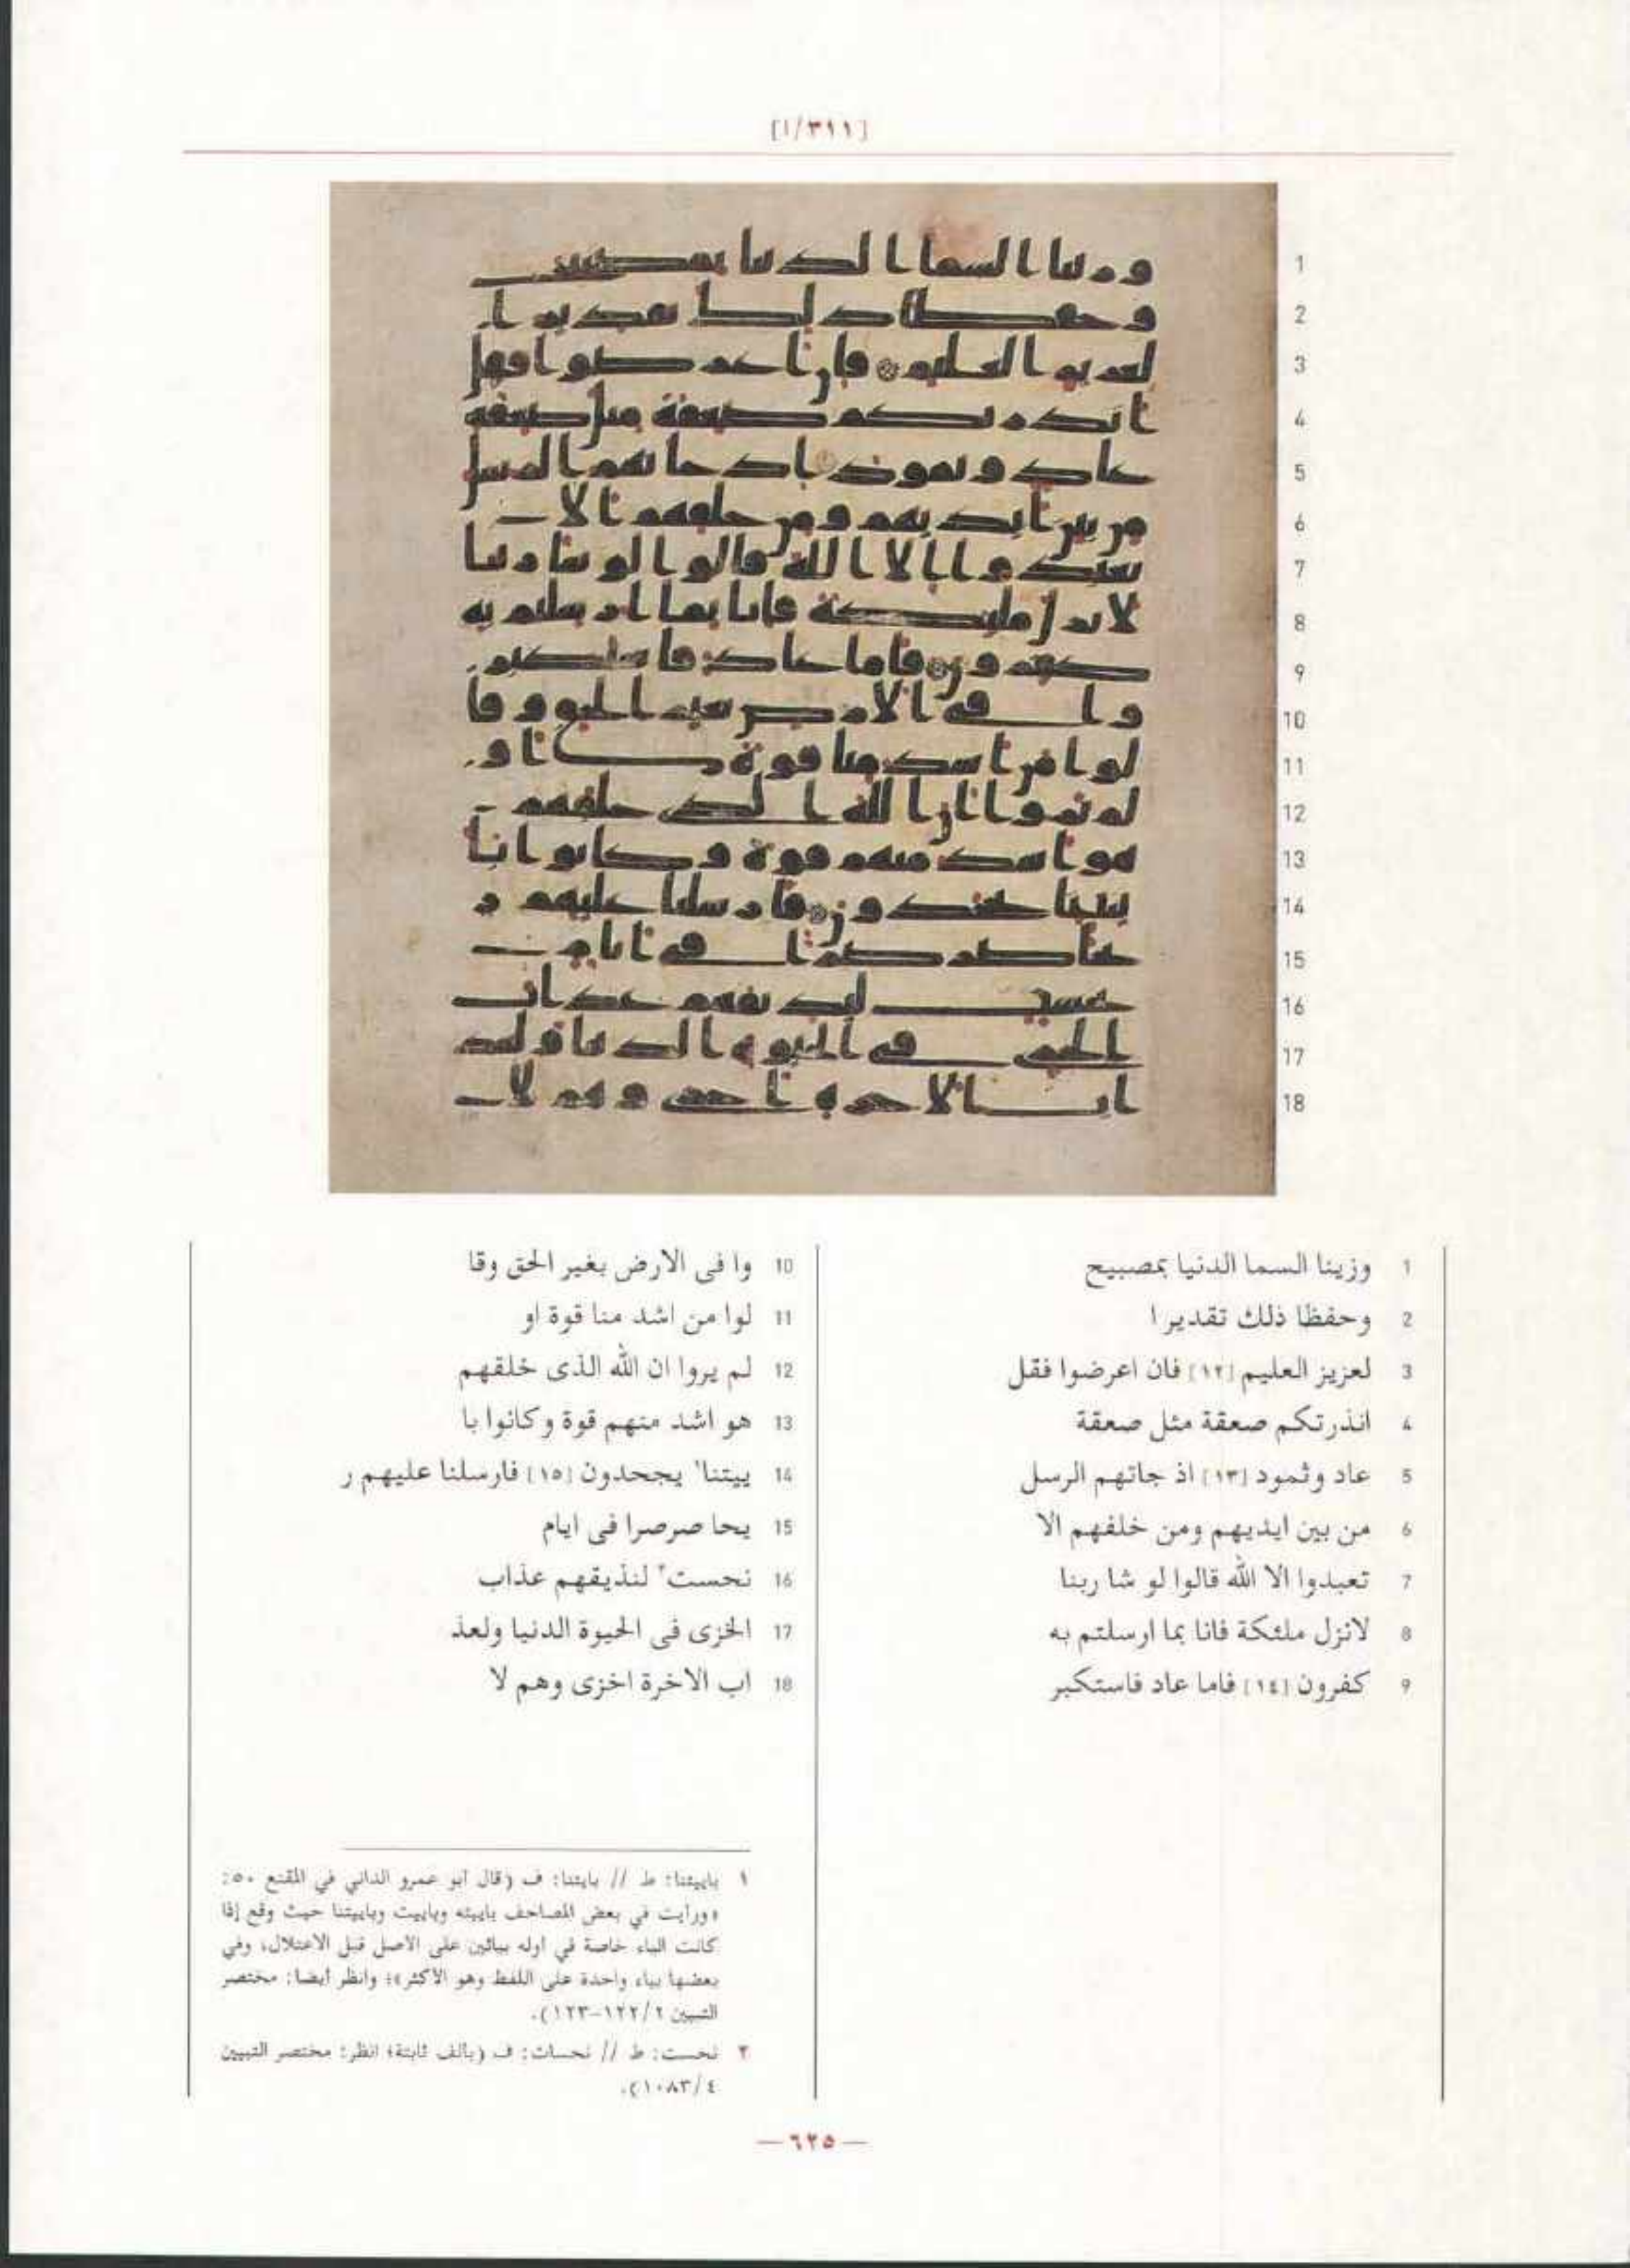 [٣١١/ا]
1 وزينا السما الدنيا بمصبيح
2 وحفظا ذلك تقدير ا
3 لعزيز العليم [١٢] فان اعرضوا فقل
4 انذرتكم صعقة مثل صعقة
5 عاد وثمود [١٣] اذ جاتهم الرسل
6 من بين ايديهم ومن خلفهم الا
7 تعبدوا الا الله قالوا لو شا ربنا
8 لانزل ملئكة فانا بما ارسلتم به
9 كفرون [١٤] فاما عاد فاستكبر
10 وا فى الارض بغير الحق وقا
11 لوا من اشد منا قوة او
12 لم يروا ان الله الذى خلقهم
13 هو اشد منهم قوة وكانوا با
14 ييتنا١ يجحدون [١٥] فارسلنا عليهم ر
15 يحا صرصرا فى ايام
16 نحست٢ لنذيقهم عذاب
17 الخزى فى الحيوة الدنيا ولعذ
18 اب الاخرة اخزى وهم لا
١ باييتنا: ط // بايتنا: ف (قال أبو عمرو الداني في المقنع ٥٠:
«ورأيت في بعض المصاحف باييته وباييت وباييتنا حيث وقع إذا
كانت الباء خاصة في أوله بيائين على الأصل قبل الاعتلال، وفي
بعضها بياء واحدة على اللفظ وهو الأكثر»؛ وانظر أيضا: مختصر
التبيين ١٢٢/٢-١٢٣).
٢ نحست: ط // نحسات: ف (بالف ثابتة؛ انظر: مختصر التبيين
١٠٨٣/٤).
— ٦٢٥ —